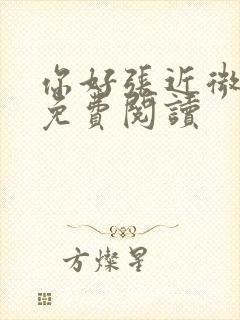 你好張近微
免費閱讀
方燦星